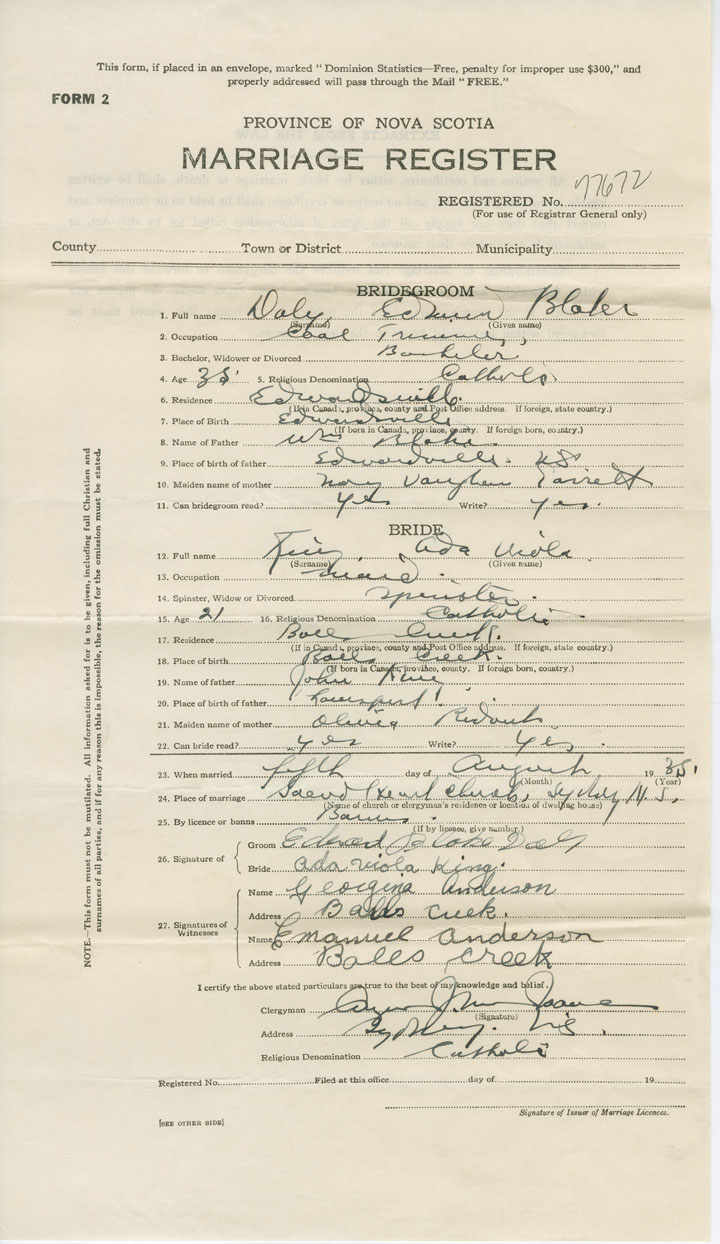 This form, if placed in an envelope, marked "Dominion Statistics—Free, penalty for improper use $300," and
properly addressed will pass through the Mail "FREE."
FORM 2
PROVINCE OF NOVA SCOTIA
MARRIAGE REGISTER
REGISTERED No. 77672
(For use of Registrar General only)
County Town or District Municipality
BRIDEGROOM
1. Full name Daly Blake
(Surname) (Given name)
2. Occupation Coal Trimmer
3. Bachelor, Widower or Divorced Bachelor
4. Age 35 5. Religious Denomination Catholic
6. Residence Edwardsville
(If in Canada, province, county and Post Office address. If foreign, state country.)
7. Place of Birth Edwardsville
(If born in Canada, province, county. If foreign born, country.)
8. Name of Father Wm Blake
9. Place of birth of father Edwardsville. NS
10. Maiden name of mother Vaughan
11. Can bridegroom read? Yes Write? Yes.
BRIDE
12. Full name King Ada Viola
(Surname) (Given name)
13. Occupation Maid
14. Spinster, Widow or Divorced Spinster.
15. Age 21 16. Religious Denomination Catholic
17. Residence Balls Creek.
(If in Canada, province, county and Post Office address. If foreign, state country.)
18. Place of birth Balls Creek.
(If born in Canada, province, county. If foreign born, country.)
19. Name of father John King
20. Place of birth of father
21. Maiden name of mother Olivia
22. Can bride read? Yes Write? Yes.
23. When married fifth day of August 1935
(Month) (Year)
24. Place of marriage Sacred Heart Church, Sydney N.S.
(Name of church or clergyman's residence or location of dwelling house)
25. By licence or banns Banns.
(If by licence, give number.)
26. Signature of
Groom Edward Blake Daly
Bride Ada Viola King.
27. Signatures of
Witnesses
Name Georgina Anderson
Address Balls Creek.
Name Emanuel Anderson
Address Balls Creek
I certify the above stated particulars are true to the best of my knowledge and belief.
Clergyman
(Signature)
Address Sydney. N.S.
Religious Denomination Catholic
Registered No. Filed at this office day of 19
Signature of Issuer of Marriage Licences.
[SEE OTHER SIDE]
NOTE.—This form must not be mutilated. All information asked for is to be given, including full Christian and
surnames of all parties, and if for any reason this is impossible, the reason for the omission must be stated.